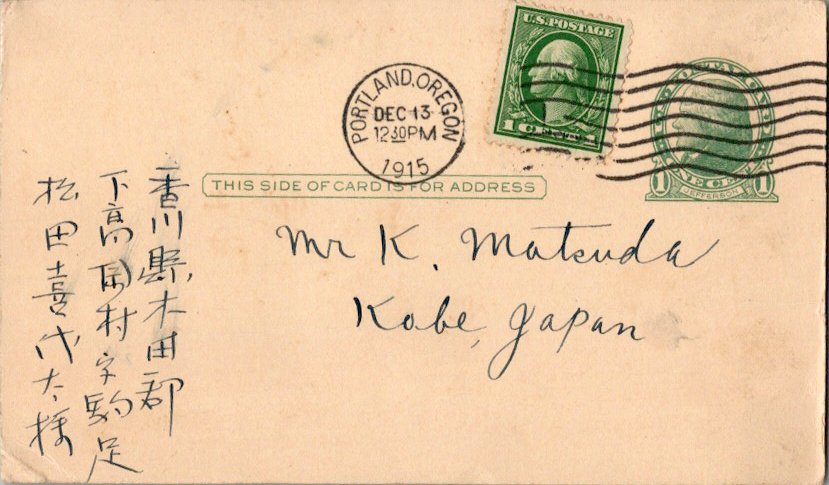 U.S.POSTAGE
1 CENT 1
PORTLAND, OREGON
DEC 13
12 30 PM
1915
1 ONE CENT 1
JEFFERSON
THIS SIDE OF CARD IS FOR ADDRESS
Mr K. Matsuda
Kobe, Japan
香川縣木田郡
下高岡村字駒足
松田喜代太様